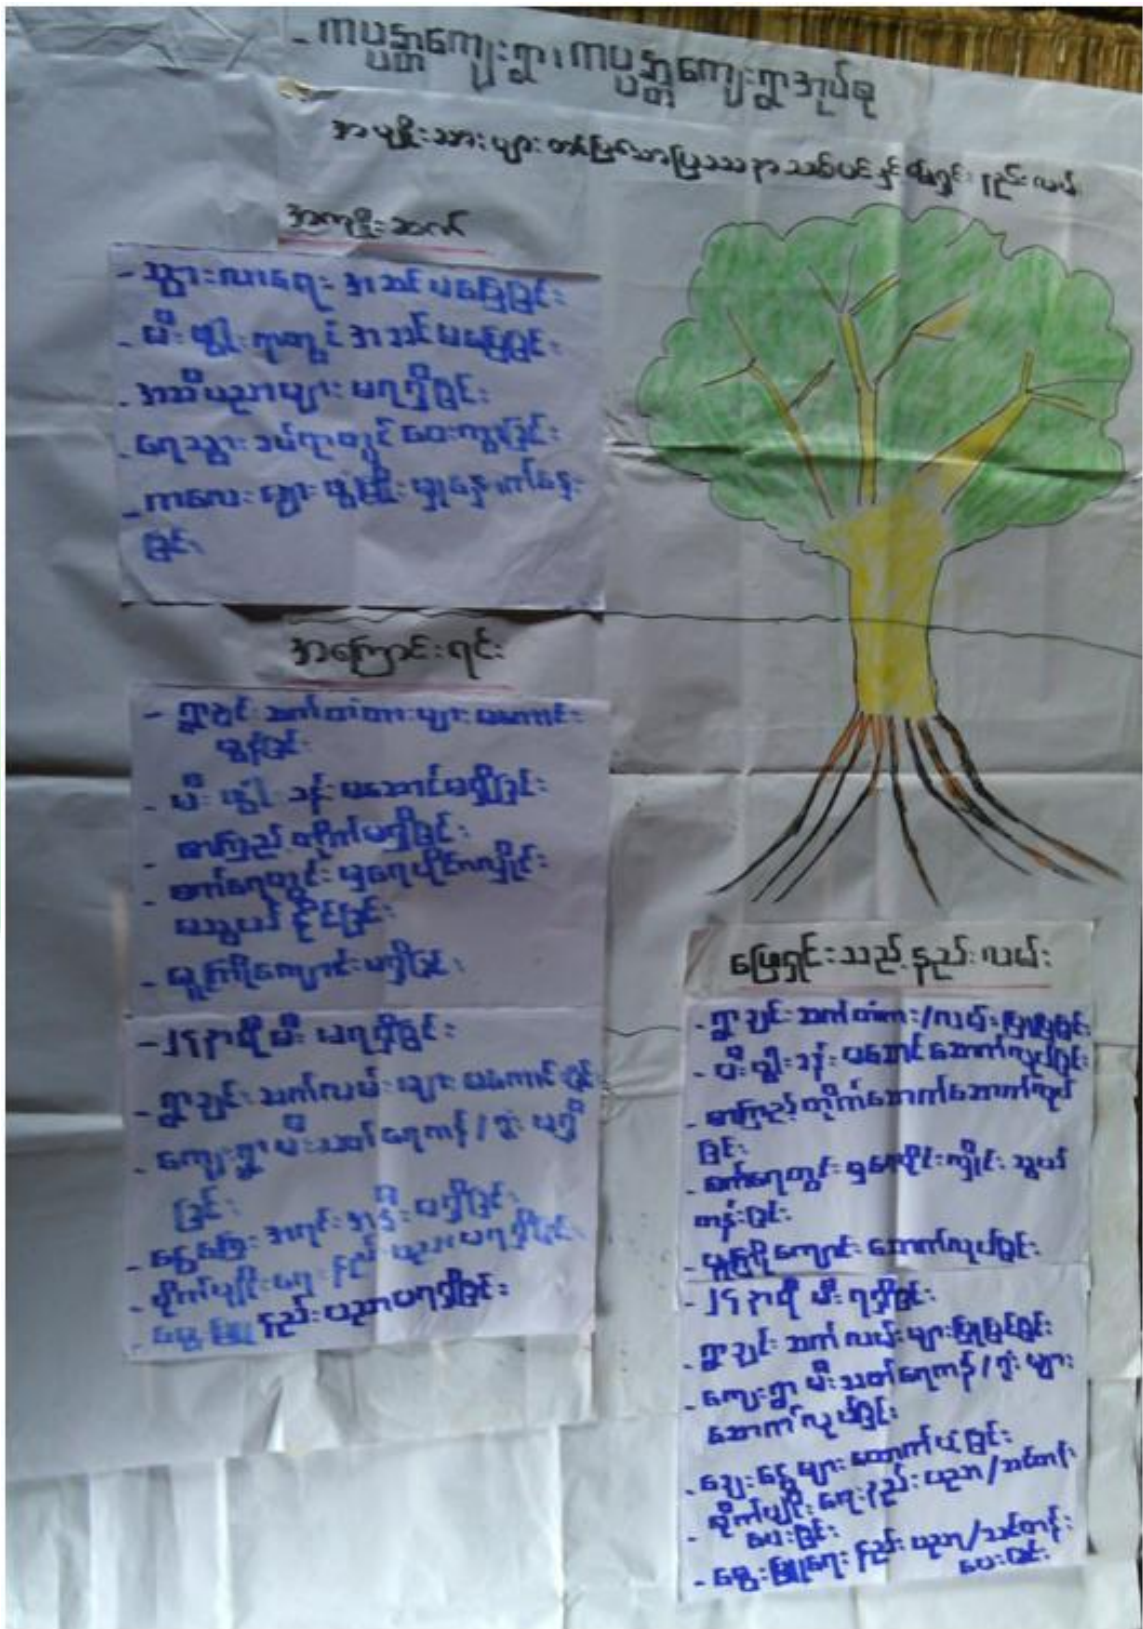 - ကပ္ပတ္တကျေးရွာ၊ ကပ္ပတ္တကျေးရွာအုပ်စု
အမျိုးသားများ တင်ပြသောပြဿနာသစ်ပင်နှင့် ဖြေရှင်းနည်းလမ်း
အကျိုးဆက်
- သွားလာရေး အဆင်မပြေခြင်း
- မီးဖွါးရာတွင် အဆင်မပြေခြင်း
- အသိပညာများ မရရှိခြင်း
- ရေသွားခပ်ရာတွင် ဝေးကွာခြင်း
- ကလေး
ခြင်း
အကြောင်းရင်း
- ရွာချင်းဆက်တံတားများ မကောင်း
မွန်ခြင်း
- မီးဖွါးခန်း မဆောင်မရှိခြင်း
- စာကြည့်တိုက်မရှိခြင်း
- စက်ရေတွင်းမှရေပိုက်လှိုင်း
မသွယ်နိုင်ခြင်း
- မူကြိုကျောင်းမရှိခြင်း
- ၂၄ နာရီ မီး မရရှိခြင်း
- ရွာချင်းဆက်လမ်းများ မကောင်းခြင်း
- ကျေးရွာမီးသတ်ရေကန် / ရုံး မရှိ
ခြင်း
- ငွေကြေး အရင်းအနှီး မရှိခြင်း
- စိုက်ပျိုးရေးနည်းပညာမရရှိခြင်း
- မွေးမြူ နည်းပညာမရရှိခြင်း
ဖြေရှင်းသည့်နည်းလမ်း
- ရွာချင်းဆက်တံတား/လမ်းပြုပြင်ခြင်း
- မီးဖွါးခန်း မဆောင်ဆောက်လုပ်ခြင်း
- စာကြည့်တိုက်ဆောက်ဆောက်လုပ်
ခြင်း
- စက်ရေတွင်းမှရေပိုင်းလှိုင်း သွယ်
တန်းခြင်း
- မူကြိုကျောင်း ဆောက်လုပ်ခြင်း
- ၂၄ နာရီ မီးရရှိခြင်း
- ရွာချင်းဆက်လမ်းများပြုပြင်ခြင်း
- ကျေးရွာ မီးသတ်ရေကန် / ရုံးများ
ဆောက်လုပ်ခြင်း
- ချေးငွေများ ထောက်ပံ့ခြင်း
- စိုက်ပျိုးရေးနည်းပညာ/သင်တန်း
ပေးခြင်း
- မွေးမြူရေးနည်းပညာ/သင်တန်း
ပေးခြင်း